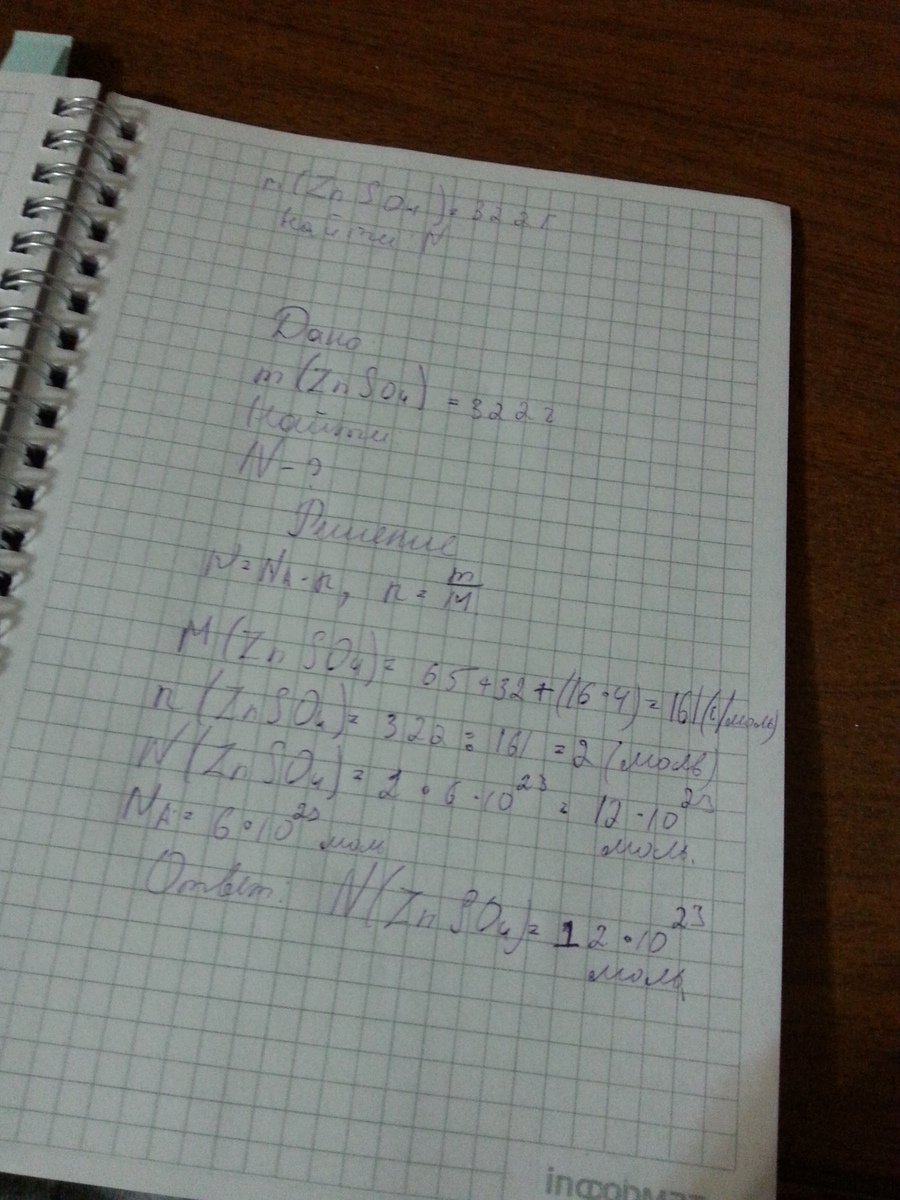 m(ZnSO₄)=322г
Найти N
Дано
m(ZnSO₄)=322г
Найти
N-?
Решение
N=Nₐ·n, n=m/M
M(ZnSO₄)=65+32+(16·4)=161(г/моль)
n(ZnSO₄)=322:161=2(моль)
N(ZnSO₄)=2·6·10²³=12·10²³
моль.
Nₐ=6·10²³ мол
Ответ: N(ZnSO₄)=12·10²³
моль